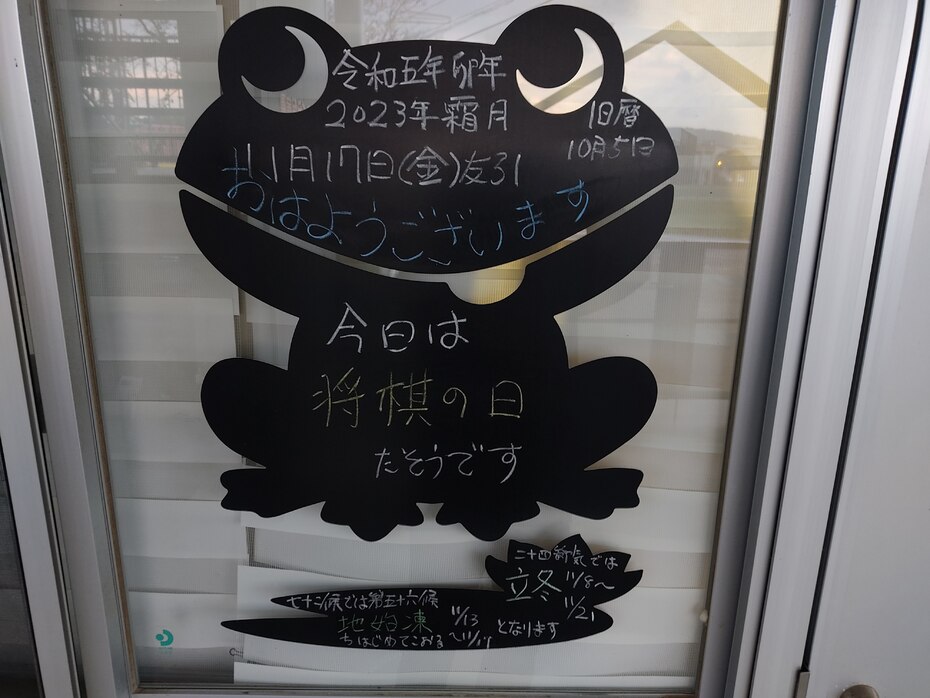 令和五年卯年
2023年霜月
旧暦
10月5日
11月17日(金)友引
おはようございます
今日は
将棋の日
だそうです
二十四節気では
立冬 11/8〜
11/21
七十二候では第五十六候
地始凍 11/13
ちはじめてこおる
となります